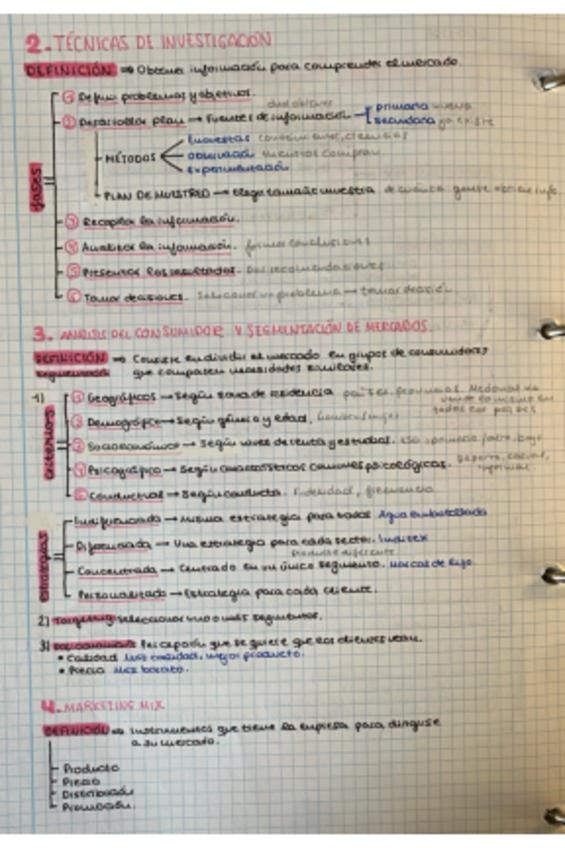 2. TÉCNICAS DE INVESTIGACIÓN
DEFINICIÓN ⇒ Obtener información para comprender el mercado.
fases
① Definir problemas y objetivos.
② Desarrollar plan → Fuentes de información
primaria nueva
secundaria ya existe
MÉTODOS
Encuestas
observación
experimentación
PLAN DE MUESTREO → elegir tamaño muestra
③ Recopilar la información.
④ Analizar la información.
⑤ Presentar los resultados.
⑥ Tomar decisiones. → tomar decisión
3. ANÁLISIS DEL CONSUMIDOR Y SEGMENTACIÓN DE MERCADOS.
DEFINICIÓN ⇒ Consiste en dividir el mercado en grupos de consumidores
segmentación que comparten necesidades similares.
1)
criterios
① Geográficos → Según zona de residencia
② Demográfico → Según género y edad,
③ Socioeconómico → Según nivel de renta y estudios.
④ Psicográfico → Según características comunes psicológicas.
⑤ Conductual → Según conducta. Fidelidad, frecuencia
estrategias
Indiferenciada → Misma estrategia para todos Agua embotellada
Diferenciada → Una estrategia para cada sector. Inditex
Concentrada → Centrado en un único segmento. Marcas de lujo
Personalizada → Estrategia para cada cliente.
2) Targeting seleccionar uno o más segmentos.
3) Posicionamiento Percepción que se quiere que los clientes vean.
• Calidad Más calidad, mejor producto.
• Precio Más barato.
4. MARKETING MIX
DEFINICIÓN ⇒ Instrumentos que tiene la empresa para dirigirse
a su mercado.
Producto
Precio
Distribución
Promoción.